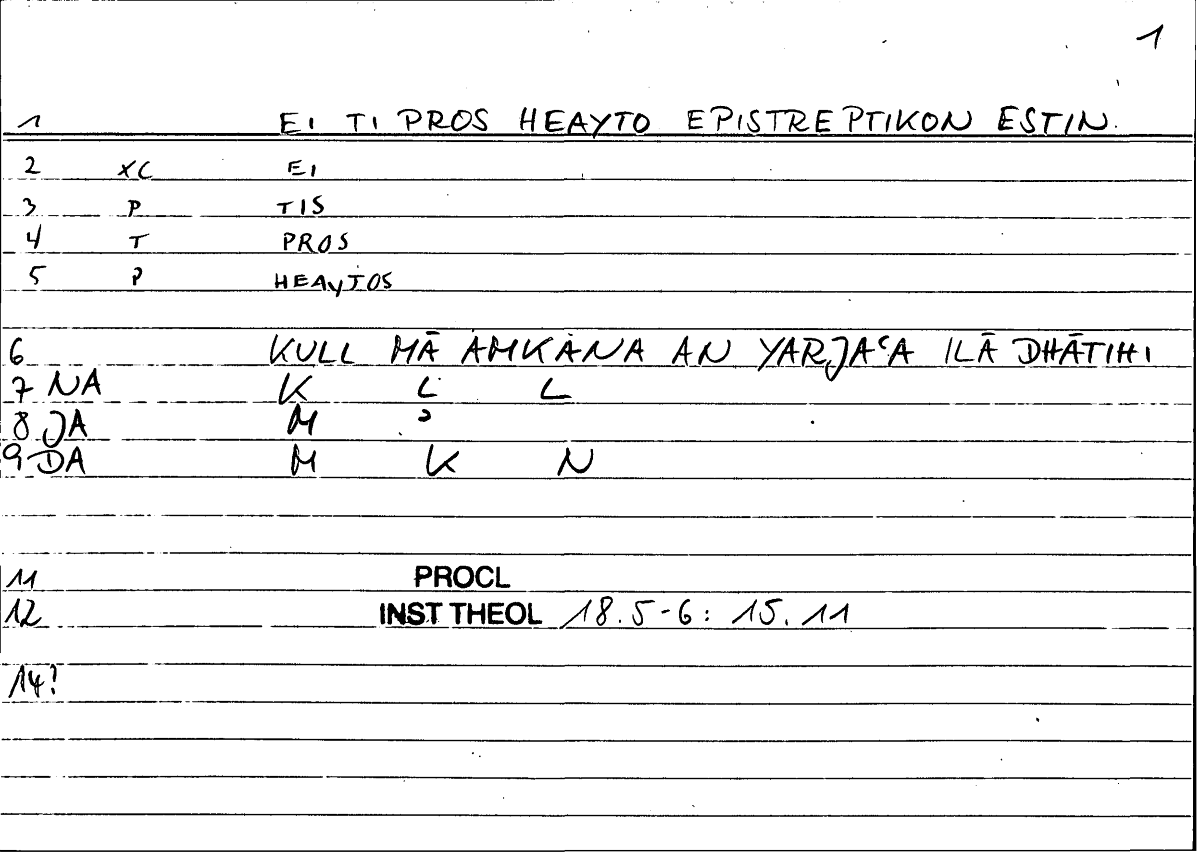 1
1 EI TI PROS HEAYTO EPISTREPTIKON ESTIN.
2 XC EI
3 P TIS
4 T PROS
5 P HEAYTOS
6 KULL MĀ AMKANA AN YARJAʿA ILĀ DHĀTIHI
7 NA K L L
8 JA M ?
9 DA M K N
11 PROCL
12 INST THEOL 18.5-6: 15.11
14?